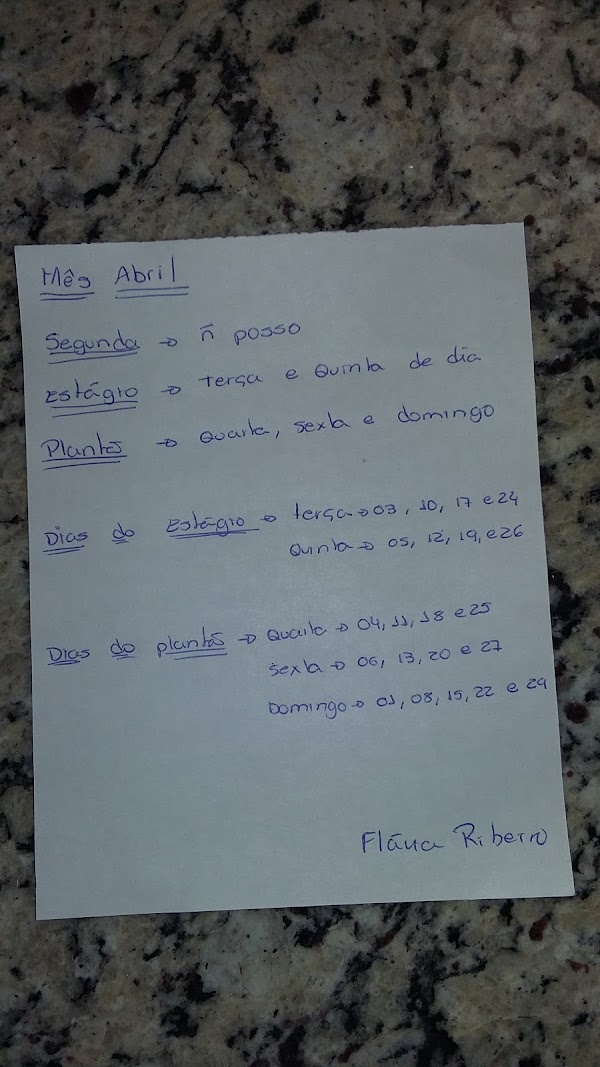 Mês Abril
Segunda → ñ posso
Estágio → terça e Quinta de dia
Plantão → Quarta, sexta e domingo
Dias do Estágio → terça → 03, 10, 17 e 24
Quinta → 05, 12, 19, e 26
Dias do plantão → Quarta → 04, 11, 18 e 25
sexta → 06, 13, 20 e 27
Domingo → 01, 08, 15, 22 e 29
Flávia Ribeiro